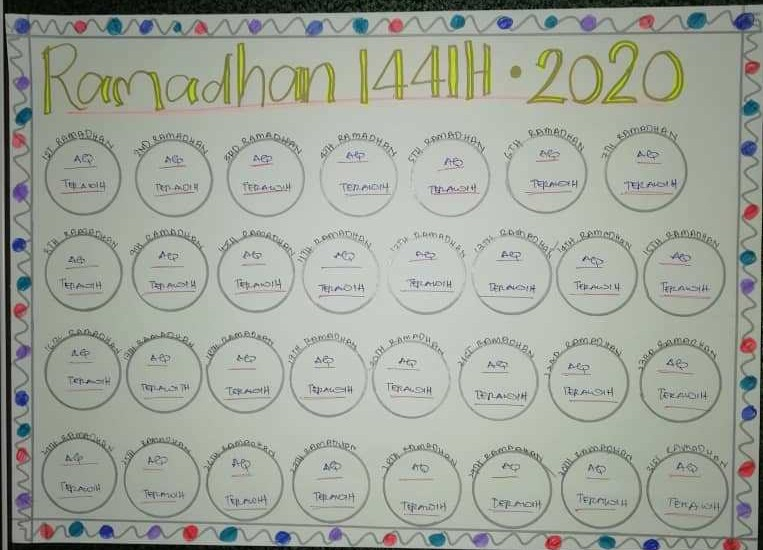 Ramadhan 1441H • 2020
1ST RAMADHAN
AQ
TERAWIH
2ND RAMADHAN
AQ
TERAWIH
3RD RAMADHAN
AQ
TERAWIH
4TH RAMADHAN
AQ
TERAWIH
5TH RAMADHAN
AQ
TERAWIH
6TH RAMADHAN
AQ
TERAWIH
7TH RAMADHAN
AQ
TERAWIH
8TH RAMADHAN
AQ
TERAWIH
9TH RAMADHAN
AQ
TERAWIH
10TH RAMADHAN
AQ
TERAWIH
11TH RAMADHAN
AQ
TERAWIH
12TH RAMADHAN
AQ
TERAWIH
13TH RAMADHAN
AQ
TERAWIH
14TH RAMADHAN
AQ
TERAWIH
15TH RAMADHAN
AQ
TERAWIH
16TH RAMADHAN
AQ
TERAWIH
17TH RAMADHAN
AQ
TERAWIH
18TH RAMADHAN
AQ
TERAWIH
19TH RAMADHAN
AQ
TERAWIH
20TH RAMADHAN
AQ
TERAWIH
21ST RAMADHAN
AQ
TERAWIH
22ND RAMADHAN
AQ
TERAWIH
23RD RAMADHAN
AQ
TERAWIH
24TH RAMADHAN
AQ
TERAWIH
25TH RAMADHAN
AQ
TERAWIH
26TH RAMADHAN
AQ
TERAWIH
27TH RAMADHAN
AQ
TERAWIH
28TH RAMADHAN
AQ
TERAWIH
29TH RAMADHAN
AQ
TERAWIH
30TH RAMADHAN
AQ
TERAWIH
31ST RAMADHAN
AQ
TERAWIH